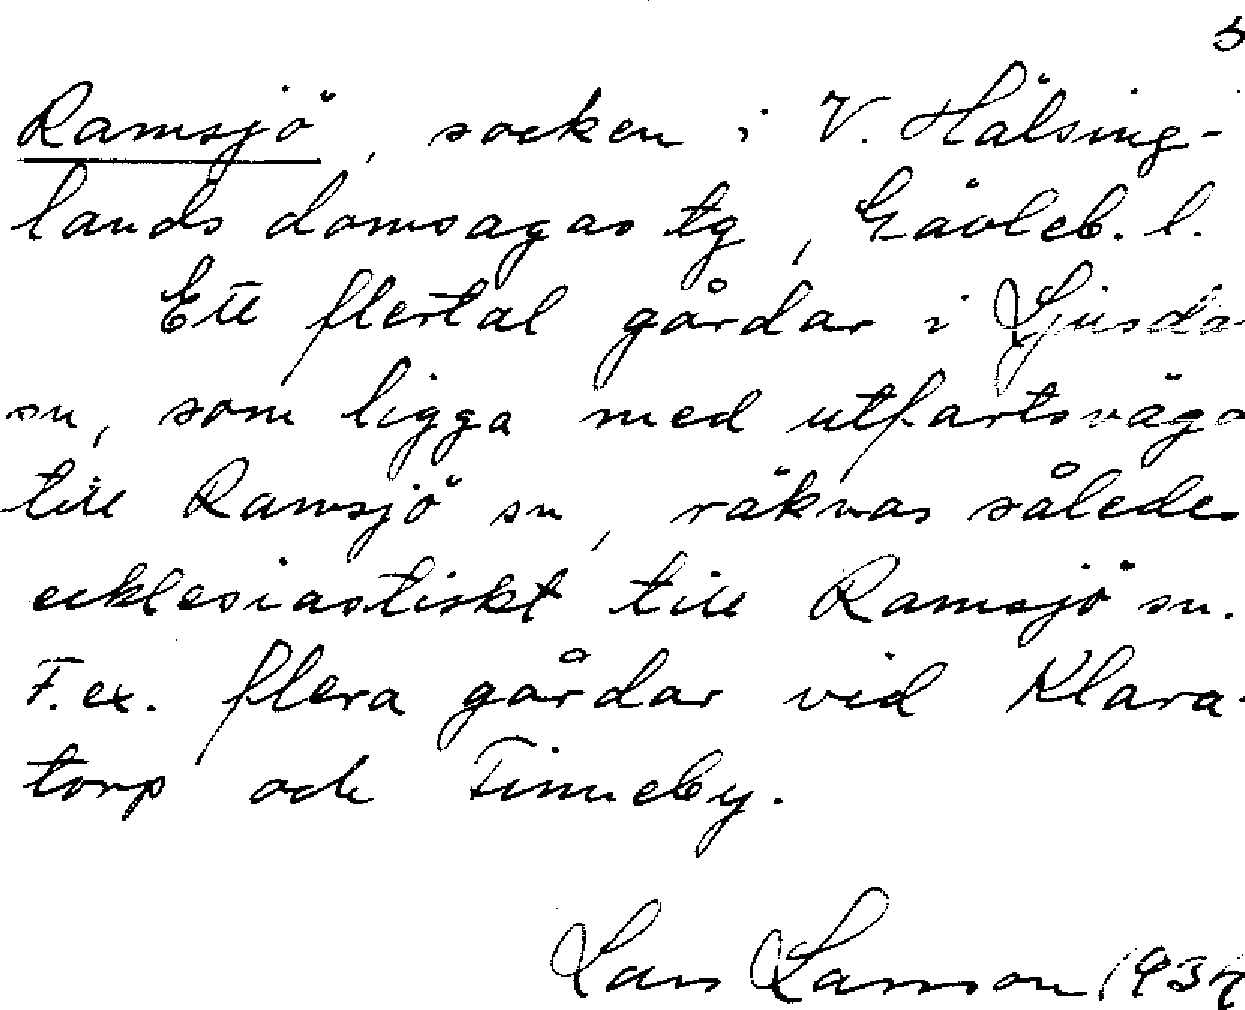 5
Ramsjö, socken i V. Hälsing-
lands domsagas tg, Gävleb. l.
Ett flertal gårdar i Ljusda
sn, som ligga med utfartsväga
till Ramsjö sn, räknas således
ecklesiastiskt till Ramsjö sn.
T.ex. flera gårdar vid Klara-
torp och Finneby.
Lars Larsson 1937